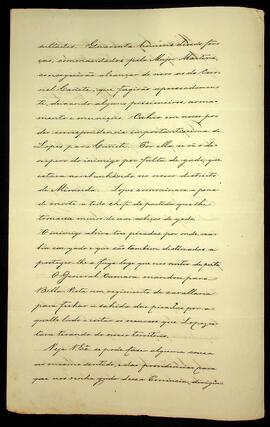 deltados. Quarenta homens desde for-
ças, commandados pelo Major Martins,
conseguirão alcançar de novo os do Coro-
nel Canete, que fugirão apressadamen-
te, deixando alguns prisioneiros, arma-
mento e munições. Cahio em nosso po-
der correspondencia importantissima de
Lopes para Canete. Por ella se vê o de-
sespero do inimigo por falta de gado, que
estava arrebanhando no nosso districto
de Miranda. Lopes comminava a pena
de morte a todo chefe de partida que lhe
tomassem menos de
O inimigo abrira tres picadas por onde
o gado e que são tambem destinadas a
proteger-lhe a fuga logo que nos
O General Camara mandou para
Bella Vista um regimento de cavallaria
para fechar a sahida das picadas por a-
quelle lado e cortar os recursos que Lopes es-
tava tirando do nosso territorio.
Veja V. Ex.ª se pode fazer alguma cousa
no mesmo sentido, e dar providencias para
que nos venha gado dessa Provincia, dirigin-